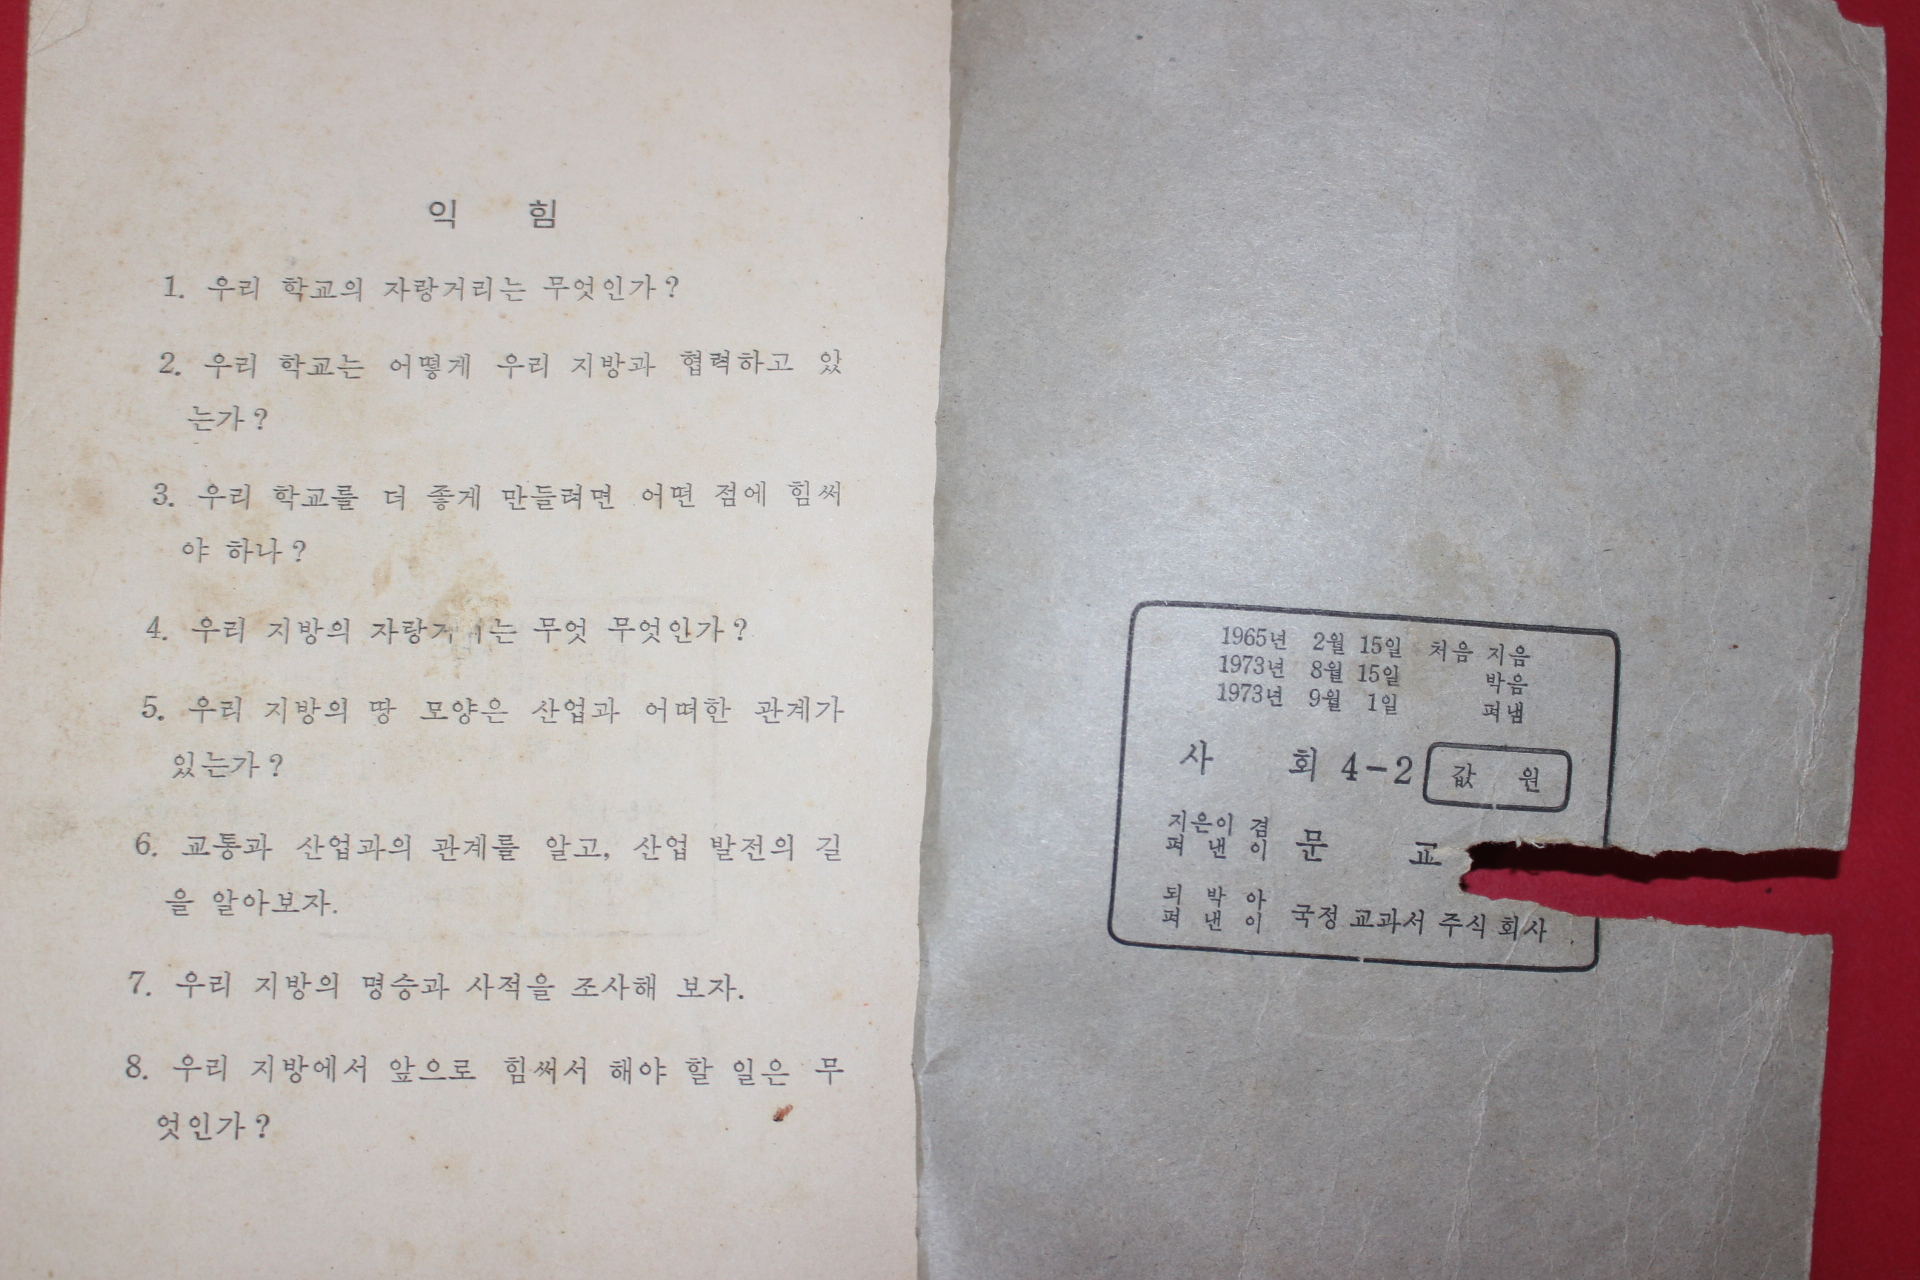 익 힘
1. 우리 학교의 자랑거리는 무엇인가?
2. 우리 학교는 어떻게 우리 지방과 협력하고 있
는가?
3. 우리 학교를 더 좋게 만들려면 어떤 점에 힘써
야 하나?
4. 우리 지방의 는 무엇 무엇인가?
5. 우리 지방의 땅 모양은 산업과 어떠한 관계가
있는가?
6. 교통과 산업과의 관계를 알고, 산업 발전의 길
을 알아보자.
7. 우리 지방의 명승과 사적을 조사해 보자.
8. 우리 지방에서 앞으로 힘써서 해야 할 일은 무
엇인가?
1965년 2월 15일 처음 지음
1973년 8월 15일 박음
1973년 9월 1일 펴냄
사 회 4-2 값 원
지은이 겸
펴 낸 이 문 교
되 박 아
펴 낸 이 국정 교과서 주식 회사